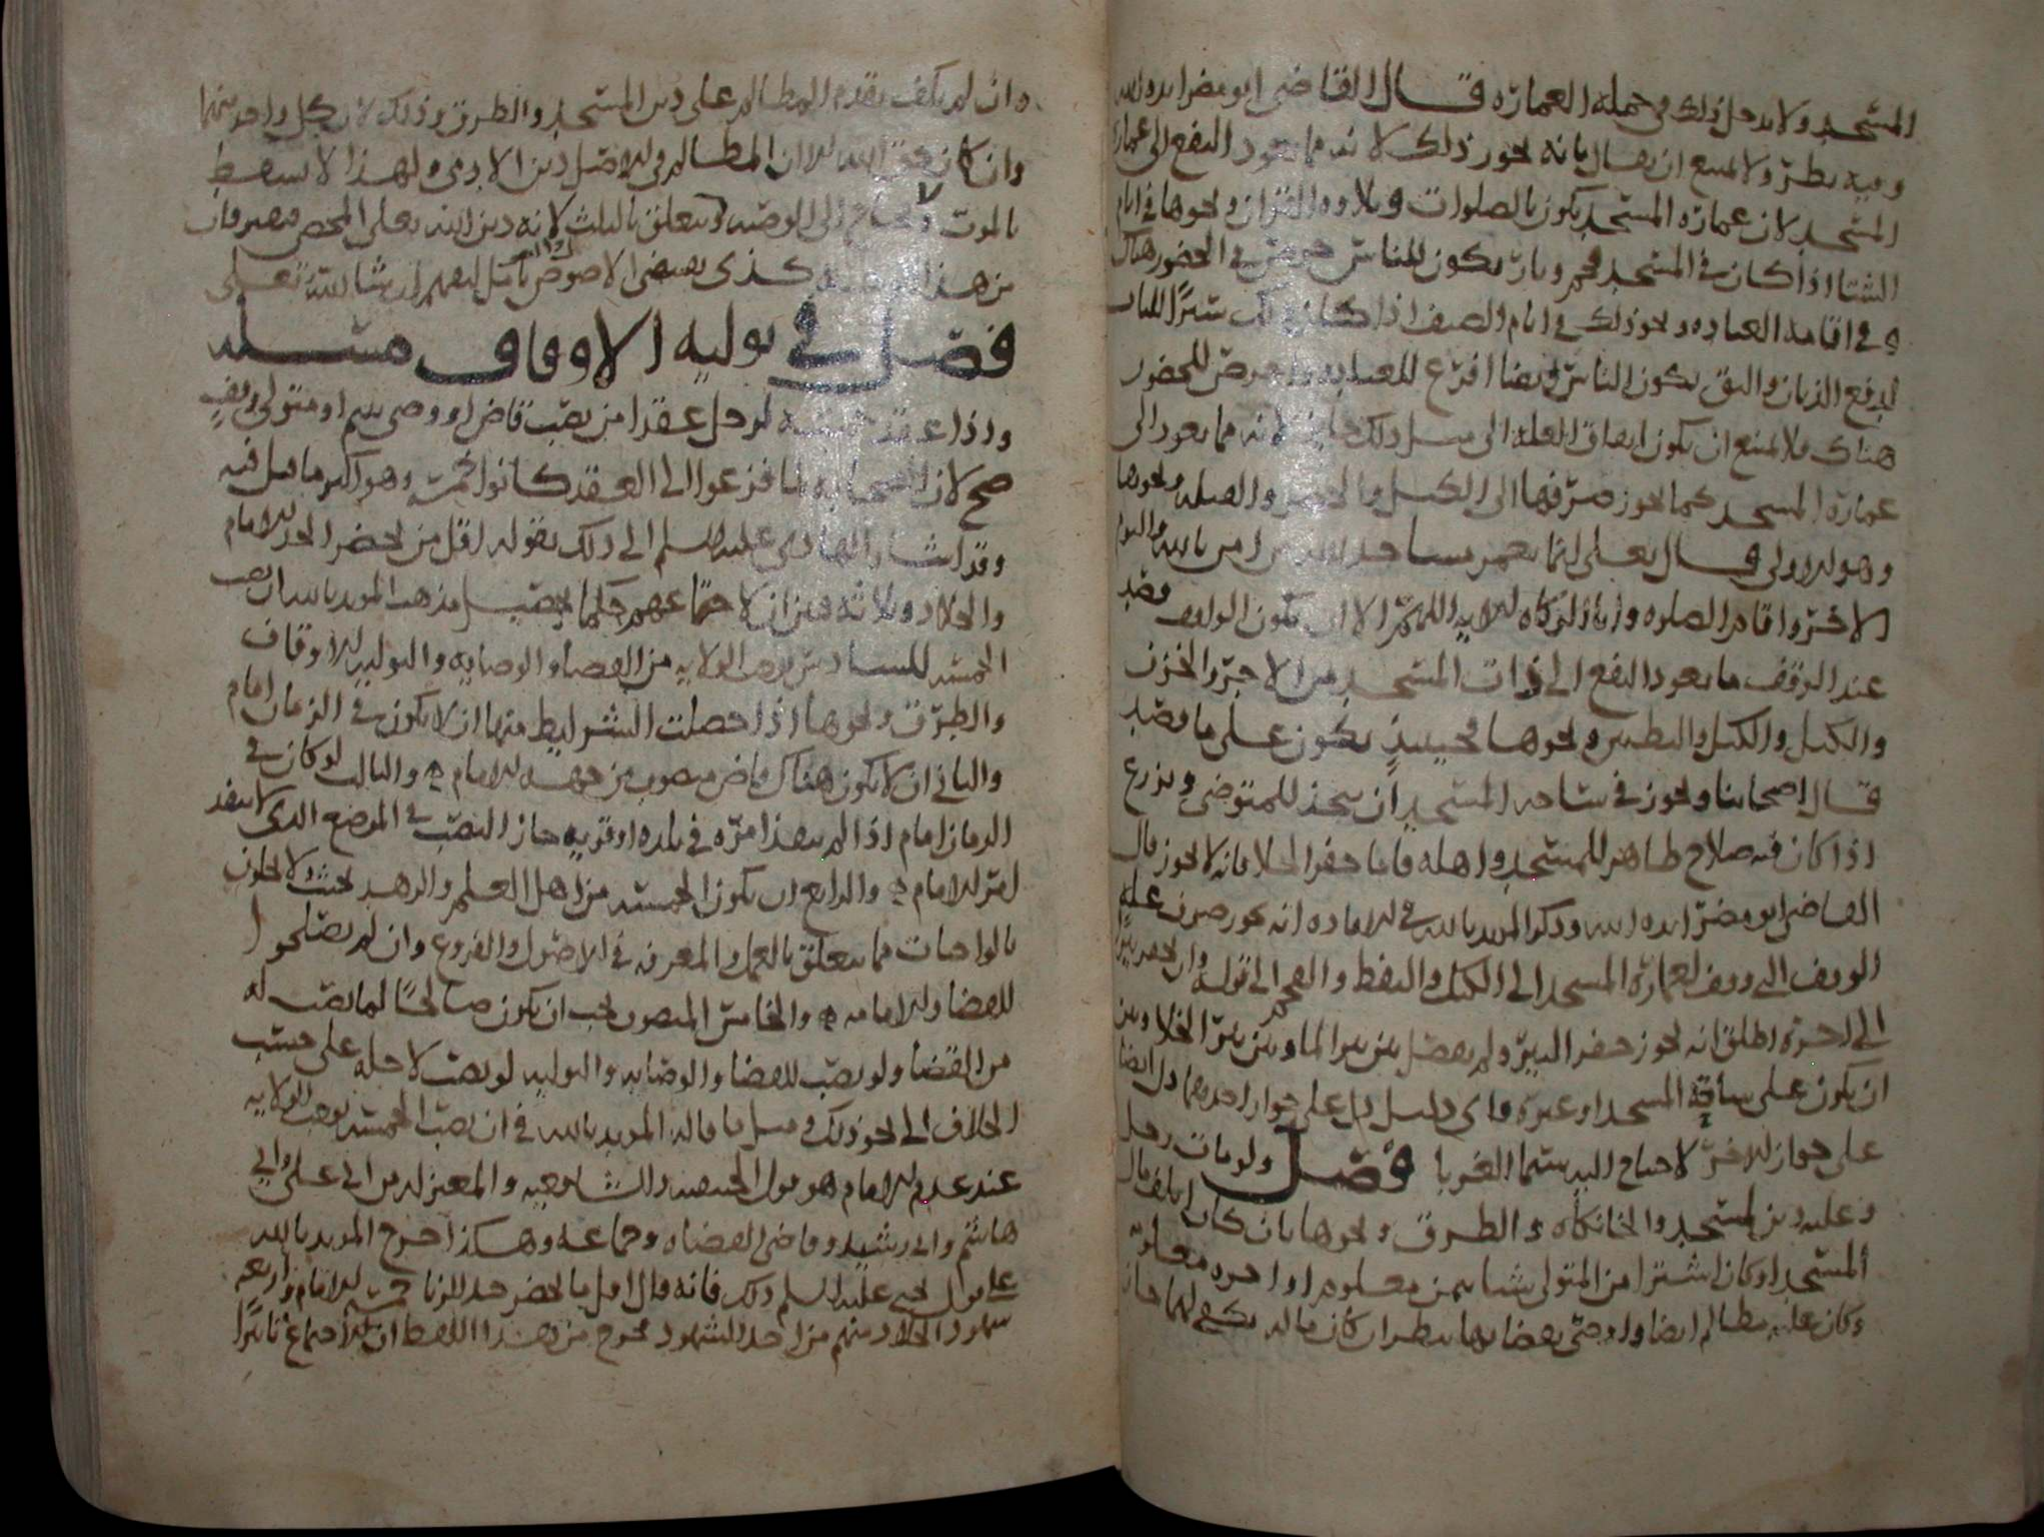 المسجد ولا يدخل ذلك في جملة العمارة قال القاضي ابو مضر ايده الله
وفيه نظر ولا يمتنع ان يقال بانه يجوز ذلك لانه مما يعود النفع الى عمارة
المسجد لان عمارة المسجد يكون بالصلوات وتلاوة القران ونحوها في ايام
الشتا اذا كان في المسجد فحم ونار يكون للناس حرص في الحضور هناك
و في اقامة العبادة ونحو ذلك في ايام الصيف اذا كان هناك ستراً للباب
لدفع الذبان والبق يكون الناس ايضا افرغ للعبادة واحرص للحضور
هناك فلا يمتنع ان يكون انفاق الغلة الى مثل ذلك جايز لانه مما يعود الى
عمارة المسجد كما يجوز صرفها الى الكنس والحصير والقبلة ونحوها
وهو الاولى قال تعلى انما يعمر مساجد الله من امن بالله واليوم
الاخر واقام الصلوه واتا الزكاه الاية اللهم الا ان يكون الواقف قصد
عند الوقف ما يعود النفع الى ذات المسجد من الاجر والخزف
والكنس والتطيين ونحوها فحينيذ يكون على ما قصد
قال اصحابنا ويجوز في ساحة المسجد ان يتخذ للمتوضي ويزرع
اذا كان فيه صلاح ظاهر للمسجد واهله فاما حفر الخلا فانه لا يجوز قال
القاضي ابو مضر ايده الله وذكر المويد بالله في الافاده انه يجوز صرف غلة
الوقف الذي وقف لعمارة المسجد الى الكنس والنفط والفحم الى قوله وان يحفر بيرا
الى اخره اطلق انه يجوز حفر البير ولم يفصل بين بير الما وبين بير الخلا وبين
ان يكون على ساحة المسجد او غيره فاي دليل دل على جواز احدهما دل ايضا
على جواز الاخر لاحتياج اليه سيما الغربا فصل ولو مات رجل
وعليه دين للمسجد والخانكاه والطرق ونحوها بان كان اتلف مال
المسجد او كان اشترا من المتولي شيا بثمن معلوم او اجره معلومه
وكان عليه مظالم ايضا واوصى بقضايها ينظر ان كان ماله يكفي لهما جاز
و ان لم يكف يقدم المظالم على دين المسجد والطرق وذلك لان كل واحد منها
وان كان حق الله الا ان المظالم في الاصل دين الادمي ولهذا لا يسقط
بالموت ولا يحتاج الى الوصية ولا يتعلق بالثلث لانه دين الله تعلى المحض فيفترقان
من هذا الوجه وكذى بعض الاصول تامل تفهم ان شا الله تعلى
فصل في توليه الاوقاف مسله
واذا عقد خمسة لرجل عقدا من نصب قاض او وصي يتيم او متولي وقف
صح لان الصحابة لما فزعوا الى العقد كانوا خمسة وهو اكثر ما قيل فيه
وقد اشار الهادي عليه السلم الى ذلك بقوله اقل من يحضر الحد الامام
والجلاد وثلاثة فيراد لاجتماعهم حكما تحصيل مذهب المويد بالله ان نصب
الخمسة للسادس يوجب الولاية من القضا والوصايه والتوليه للاوقاف
والطرق ونحوها اذا حصلت الشرايط منها ان لا يكون في الزمان امام
والثاني ان لا يكون هناك قاض منصوب من جهة الامام ه والثالث لو كان في
الزمان امام اذا لم ينفذ امره في بلده او قريه جاز النصب في الموضع الذي لا ينفذ
امر الامام ه والرابع ان يكون الخمسة من اهل العلم والزهد بحيث لا يخلون
بالواجبات مما يتعلق بالعمل والمعرفه في الاصول والفروع وان لم يصلحوا
للقضا والامامه ه والخامس المنصوب يجب ان يكون صالحًا لما نصب له
من القضا ولو نصب للقضا والوصايه والتوليه لو نصب لاجله على حسب
الخلاف الى نحو ذلك ومثل ما قاله المويد بالله في ان نصب الخمسه يوجب الولايه
عند عدم الامام هو قول الحنفيه والشافعيه والمعتزله من ابي علي وابي
هاشم وابي رشيد وقاضي القضاه وجماعه وهكذا اخرج المويد بالله
على قول يحيى عليه السلم ذلك فانه قال اقل ما يحضر حد الزنا خمسة الامام واربعه
شهود الجلاد منهم من احد الشهود فخرج من هذا اللفظ ان للاجتماع تاثيرًا